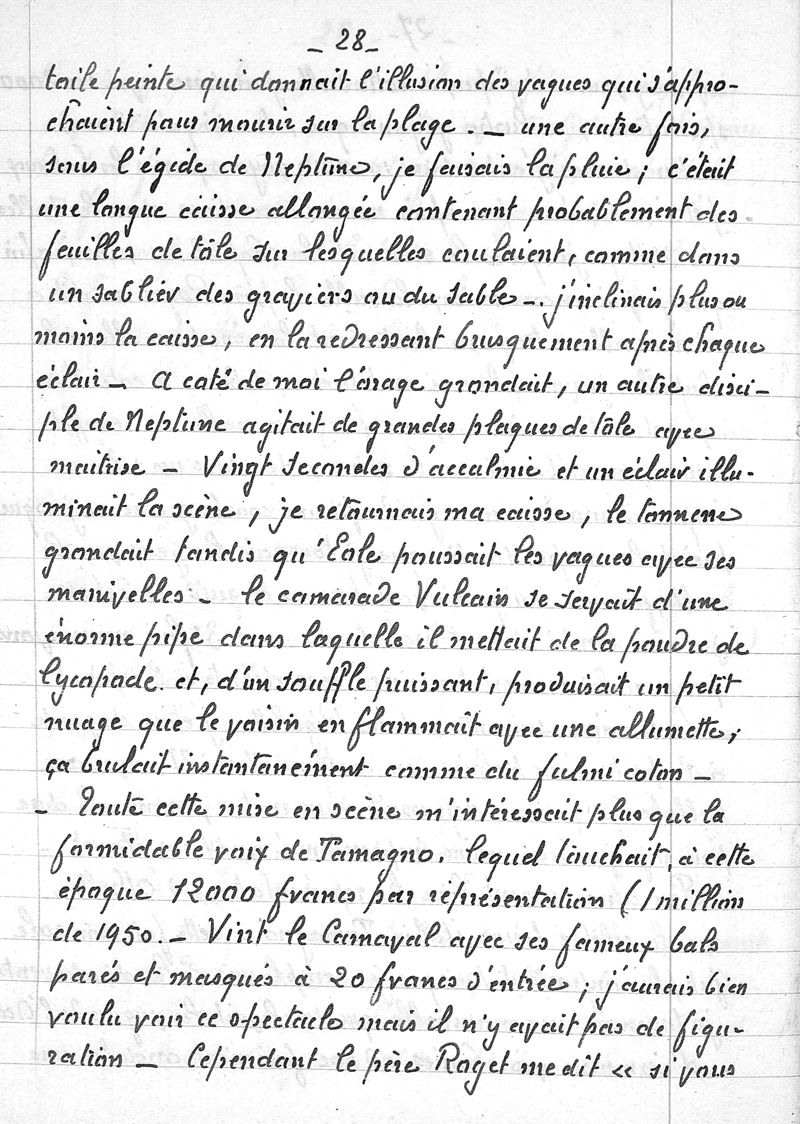 _ 28_
toile peinte qui donnait l'illusion des vagues qui s'appro-
chaient pour mourir sur la plage. _ une autre fois,
sous l'égide de Neptune, je faisais la pluie ; c'était
une longue caisse allongée contenant probablement des
feuilles de tôle sur lesquelles coulaient, comme dans
un sablier des graviers ou du sable _. j'inclinais plus ou
moins la caisse, en la redressant brusquement après chaque
éclair _ A coté de moi l'orage grondait, un autre disci-
ple de Neptune agitait de grandes plaques de tôle avec
maitrise _ Vingt secondes d'accalmie et un éclair illu-
minait la scène, je retournais ma caisse, le tonnerre
grondait tandis qu'Eole poussait les vagues avec ses
manivelles _ le camarade Vulcain se servait d'une
énorme pipe dans laquelle il mettait de la poudre de
lycopode. et, d'un souffle puissant, produisait un petit
nuage que le voisin enflammait avec une allumette ;
ça brulait instantanément comme du fulmi coton _
_ Toute cette mise en scène m'intéressait plus que la
formidable voix de Tamagno. lequel touchait, à cette
époque 12000 francs par représentation (1 million
de 1950. _ Vint le Carnaval avec ses fameux bals
parés et masqués à 20 francs d'entrée ; j'aurais bien
voulu voir ce spectacle mais il n'y avait pas de figu-
ration _ Cependant le père Roget me dit « si vous